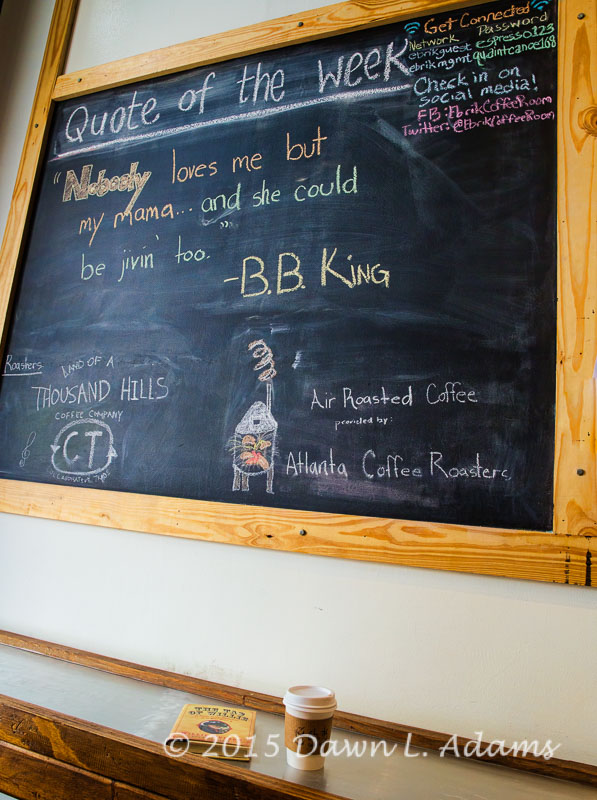 Quote of the week
Get Connected
Network Password
ebrikguest espresso323
ebrikmgmt quaintcanoe168
Check in on
social media!
FB: EbrikCoffeeRoom
Twitter: @EbrikCoffeeRoom
"Nobody loves me but
my mama... and she could
be jivin' too."
-B.B. King
Roasters:
LAND OF A
THOUSAND HILLS
COFFEE COMPANY
CT
Air Roasted Coffee
provided by:
Atlanta Coffee Roasters
THE TAO
OF WILLIE
© 2015 Dawn L. Adams